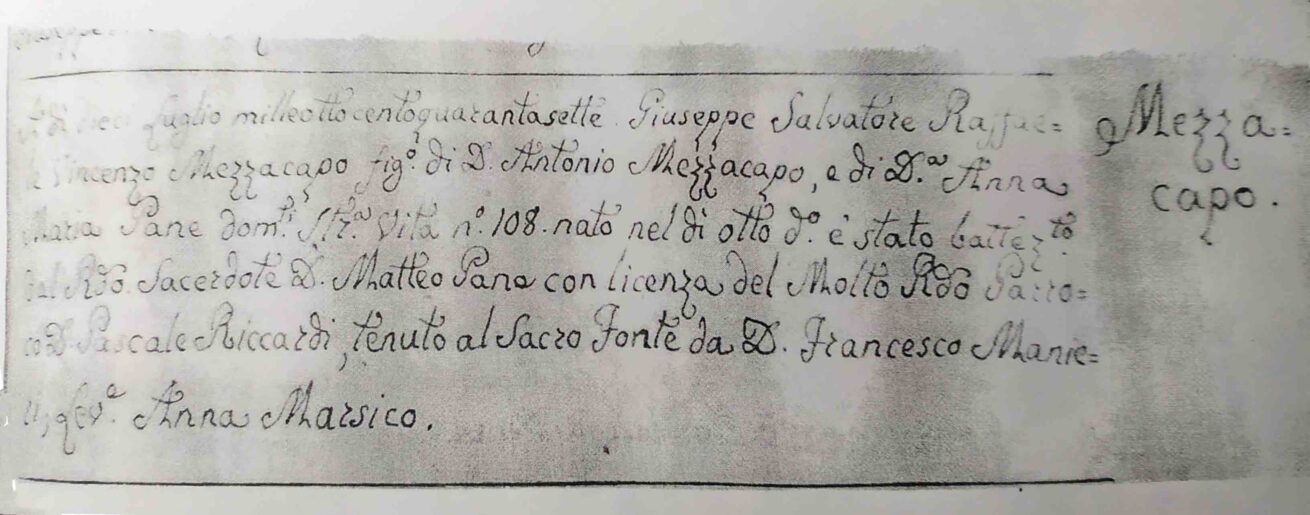 A' dì dieci Luglio milleottocentoquarantasette. Giuseppe Salvatore Raffae=
le Vincenzo Mezzacapo figº. di D. Antonio Mezzacapo, e di D.ª Anna
Maria Pane domᵗⁱ. Strª. Vita nº. 108. nato nel dì otto dº. è stato battezᵗº
dal Rdo. Sacerdote D. Matteo Pane con licenza del Molto Rdo Parro=
co D. Pascale Riccardi, tenuto al Sacro Fonte da D. Francesco Manie=
ri, Anna Marsico.
Mezza=
capo.